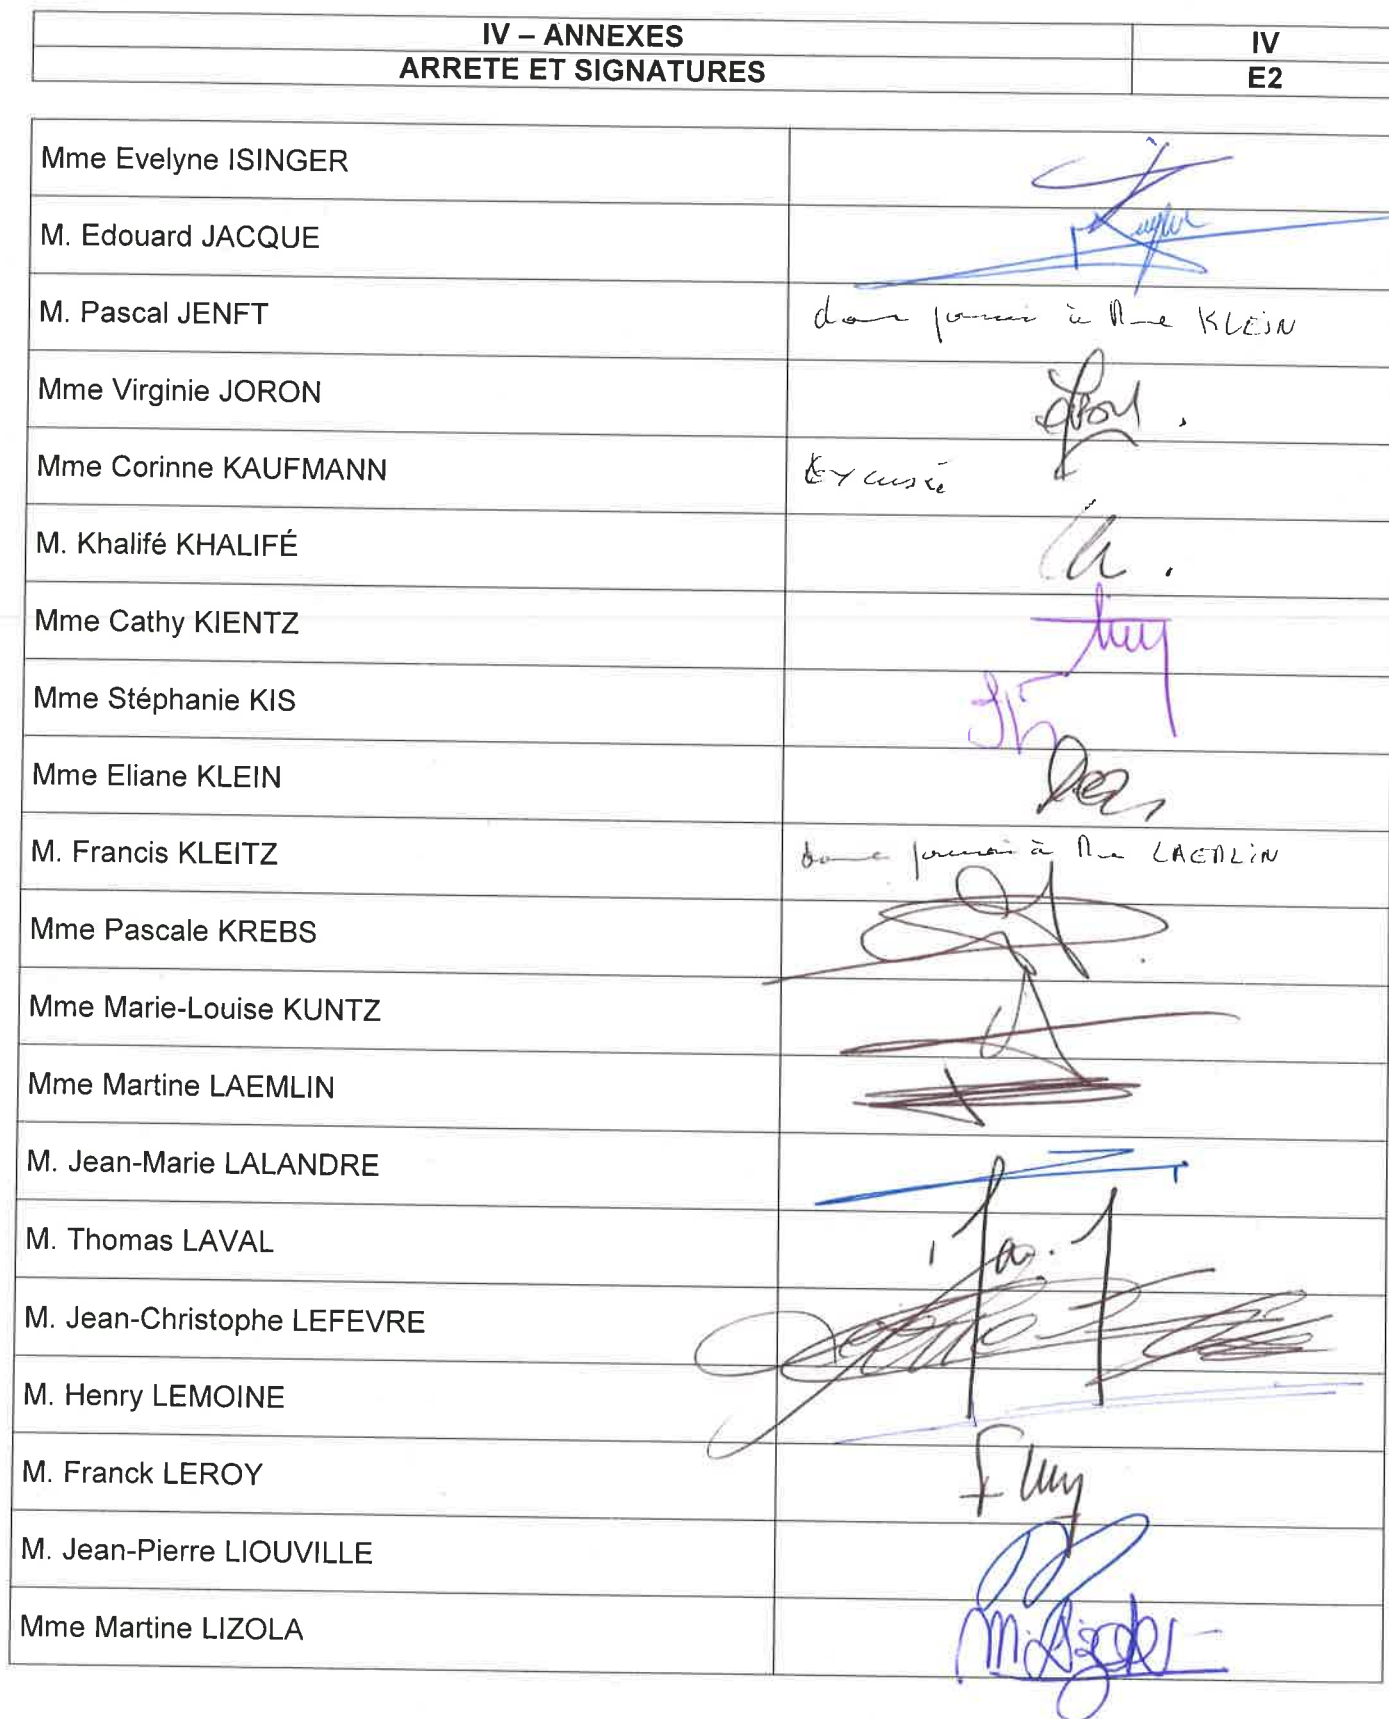 IV – ANNEXES IV
ARRETE ET SIGNATURES E2
Mme Evelyne ISINGER
M. Edouard JACQUE
M. Pascal JENFT donne pouvoir à Mme KLEIN
Mme Virginie JORON
Mme Corinne KAUFMANN Excusée
M. Khalifé KHALIFÉ
Mme Cathy KIENTZ
Mme Stéphanie KIS
Mme Eliane KLEIN
M. Francis KLEITZ donne pouvoir à Mme LAEMLIN
Mme Pascale KREBS
Mme Marie-Louise KUNTZ
Mme Martine LAEMLIN
M. Jean-Marie LALANDRE
M. Thomas LAVAL
M. Jean-Christophe LEFEVRE
M. Henry LEMOINE
M. Franck LEROY
M. Jean-Pierre LIOUVILLE
Mme Martine LIZOLA M. Lizola